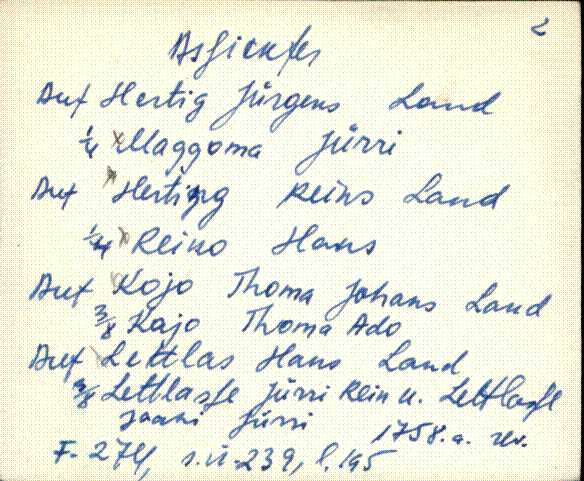 2
Auf Hertig Jürgens Land
1/4 Maggoma Jürri
Auf Hertigg Reins Land
1/4 Reino Hans
Auf Kojo Thoma Johans Land
3/8 Kajo Thoma Ado
Auf Lettlas Hans Land
3/8 Lettlasse Jürri Rein u. Lettlasse
Jaani Jürri
1758.a. rev.
F. 274, s.ü-239, l. 195